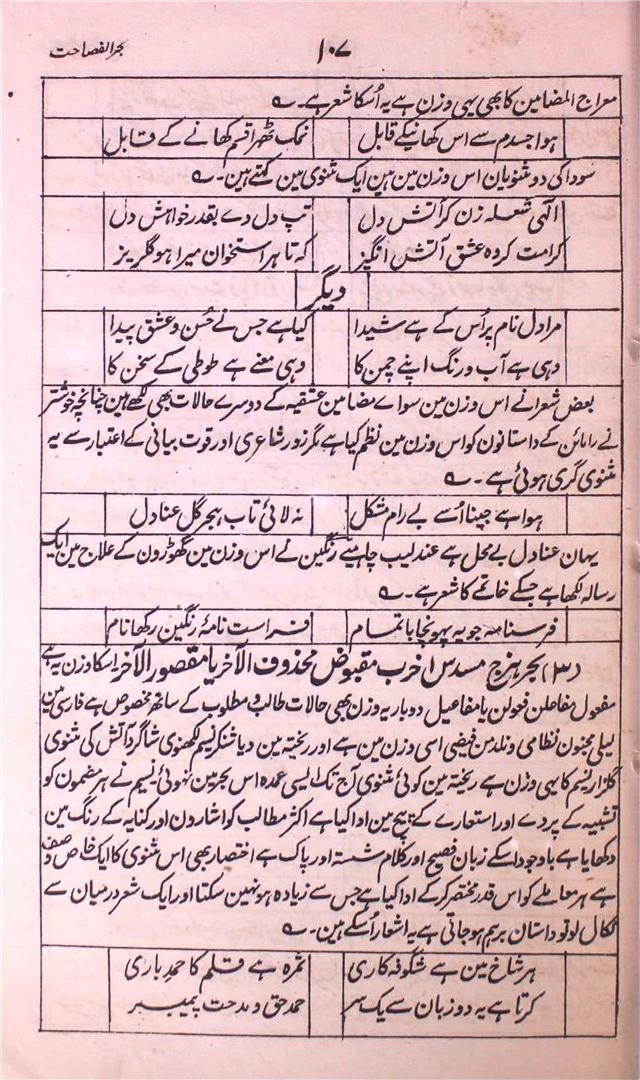 ۱۰۷ بحر الفصاحت
معراج المضامین کا بھی یہی وزن ہے یہ اُسکا شعر ہے۔ ؎
ہوا جسدم سے اس کھانیکے قابل نمک ٹھہرا قسم کھانے کے قابل
سودا کی دو مثنویان اس وزن مین ہین ایک مثنوی مین کہتے ہین۔ ؎
الٰہی شعلہ زن کر آتش دل تپ دل دے بقدر خواہش دل
کرامت کر وہ عشق آتش انگیز کہ تا ہر استخوان میرا ہو گلریز
دیگر
مرا دل نام پر اُس کے ہے شیدا کیا ہے جس نے حُسن و عشق پیدا
وہی ہے آب و رنگ اپنے چمن کا وہی معنے ہے طوطی کے سخن کا
بعض شعرا نے اس وزن مین سواے مضامین عشقیہ کے دوسرے حالات بھی لکھے ہین چنانچہ خوشتر
نے رامائن کے داستانون کو اس وزن مین نظم کیا ہے مگر زور شاعری اور قوت بیانی کے اعتبار سے یہ
مثنوی گری ہوئی ہے۔ ؎
ہوا ہے جینا اُسے بے رام مشکل نہ لائی تاب ہجر گل عنادل
یہان عنادل بے محل ہے عندلیب چاہیے رنگین نے اس وزن مین گھوڑون کے علاج مین ایک
رسالہ لکھا ہے جسکے خاتمے کا شعر ہے۔ ؎
فرسنامہ جو یہ پہونچا باتمام فراست نامۂ رنگین رکھا نام
(۳) بحر ہزج مسدس اخرب مقبوض محذوف الآخر یا مقصور الآخر اسکا وزن یہ ہے
مفعول مفاعلن فعولن یا مفاعیل دو بار یہ وزن بھی حالات طالب و مطلوب کے ساتھ مخصوص ہے فارسی مین
لیلی مجنون نظامی و نلدمن فیضی اسی وزن مین ہے اور ریختہ مین دیا شنکر نسیم لکھنوی شاگرد آتش کی مثنوی
گلزار نسیم کا یہی وزن ہے ریختہ مین کوئی مثنوی آج تک ایسی عمدہ اس بحر مین نہوئی نسیم نے ہر مضمون کو
تشبیہ کے پردے اور استعارے کے پیچ مین ادا کیا ہے اکثر مطالب کو اشارون اور کنایہ کے رنگ مین
دکھایا ہے باوجود اسکے زبان فصیح اور کلام شستہ اور پاک ہے اختصار بھی اس مثنوی کا ایک خاص وصف
ہے ہر معاملے کو اس قدر مختصر کر کے ادا کیا ہے جس سے زیادہ ہو نہین سکتا اور ایک شعر درمیان سے
نکال لو تو داستان برہم ہو جاتی ہے یہ اشعار اُسکے ہین۔ ؎
ہر شاخ مین ہے شگوفہ کاری ثمرہ ہے قلم کا حمد باری
کرتا ہے یہ دو زبان سے یک سر حمد حق و مدحت پیمبر